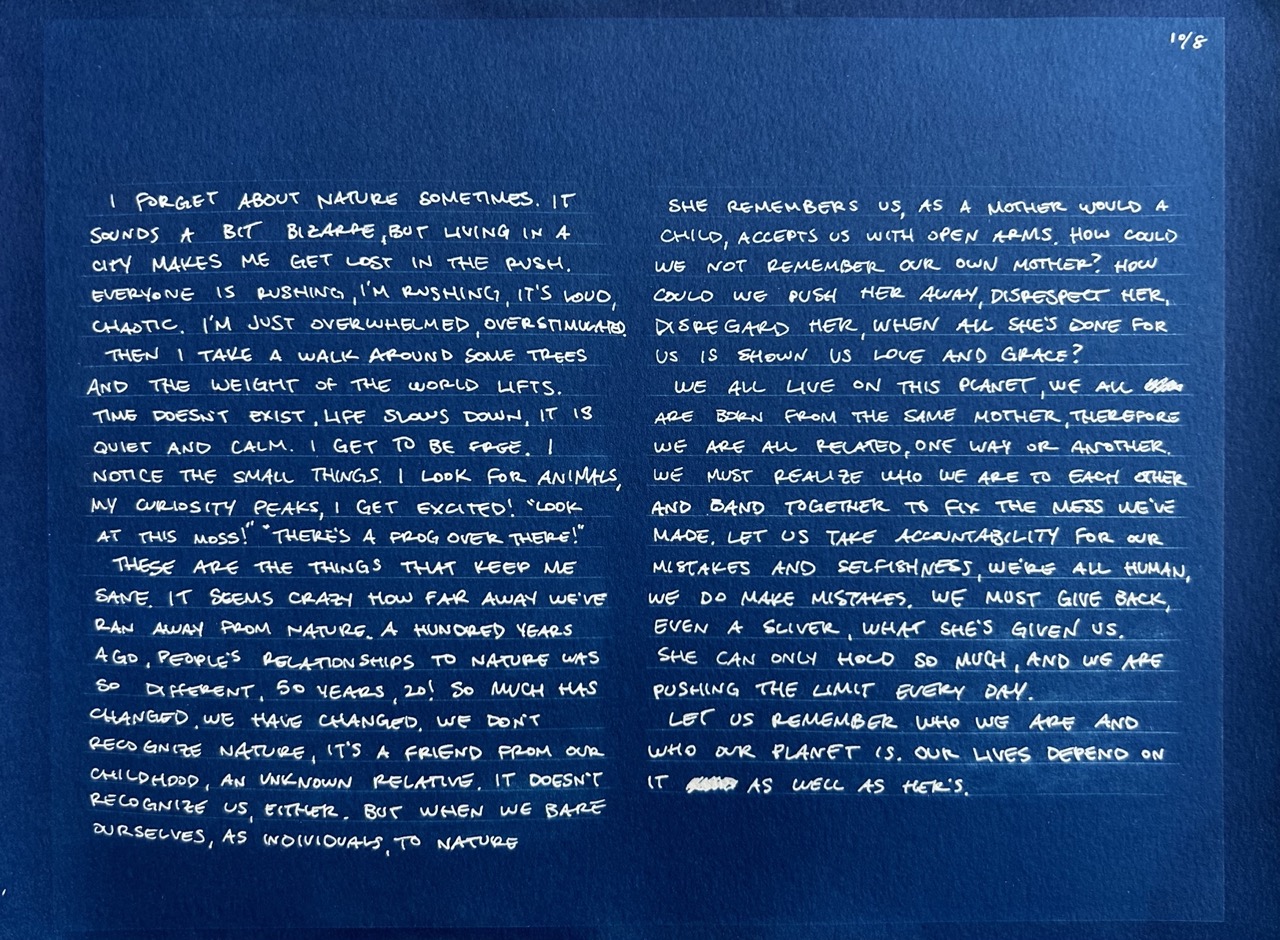 10/8
I FORGET ABOUT NATURE SOMETIMES. IT
SOUNDS A BIT BIZARRE, BUT LIVING IN A
CITY MAKES ME GET LOST IN THE RUSH.
EVERYONE IS RUSHING, I'M RUSHING, IT'S LOUD,
CHAOTIC. I'M JUST OVERWHELMED, OVERSTIMULATED.
THEN I TAKE A WALK AROUND SOME TREES
AND THE WEIGHT OF THE WORLD LIFTS.
TIME DOESN'T EXIST, LIFE SLOWS DOWN, IT IS
QUIET AND CALM. I GET TO BE FREE. I
NOTICE THE SMALL THINGS. I LOOK FOR ANIMALS,
MY CURIOSITY PEAKS, I GET EXCITED! "LOOK
AT THIS MOSS!" "THERE'S A FROG OVER THERE!"
THESE ARE THE THINGS THAT KEEP ME
SANE. IT SEEMS CRAZY HOW FAR AWAY WE'VE
RAN AWAY FROM NATURE. A HUNDRED YEARS
AGO, PEOPLE'S RELATIONSHIPS TO NATURE WAS
SO DIFFERENT, 50 YEARS, 20! SO MUCH HAS
CHANGED. WE HAVE CHANGED. WE DON'T
RECOGNIZE NATURE, IT'S A FRIEND FROM OUR
CHILDHOOD, AN UNKNOWN RELATIVE. IT DOESN'T
RECOGNIZE US, EITHER. BUT WHEN WE BARE
OURSELVES, AS INDIVIDUALS, TO NATURE
SHE REMEMBERS US, AS A MOTHER WOULD A
CHILD, ACCEPTS US WITH OPEN ARMS. HOW COULD
WE NOT REMEMBER OUR OWN MOTHER? HOW
COULD WE PUSH HER AWAY, DISRESPECT HER,
DISREGARD HER, WHEN ALL SHE'S DONE FOR
US IS SHOWN US LOVE AND GRACE?
WE ALL LIVE ON THIS PLANET, WE ALL
ARE BORN FROM THE SAME MOTHER, THEREFORE
WE ARE ALL RELATED, ONE WAY OR ANOTHER.
WE MUST REALIZE WHO WE ARE TO EACH OTHER
AND BAND TOGETHER TO FIX THE MESS WE'VE
MADE. LET US TAKE ACCOUNTABILITY FOR OUR
MISTAKES AND SELFISHNESS, WE'RE ALL HUMAN,
WE DO MAKE MISTAKES. WE MUST GIVE BACK,
EVEN A SLIVER, WHAT SHE'S GIVEN US.
SHE CAN ONLY HOLD SO MUCH, AND WE ARE
PUSHING THE LIMIT EVERY DAY.
LET US REMEMBER WHO WE ARE AND
WHO OUR PLANET IS. OUR LIVES DEPEND ON
IT AS WELL AS HER'S.